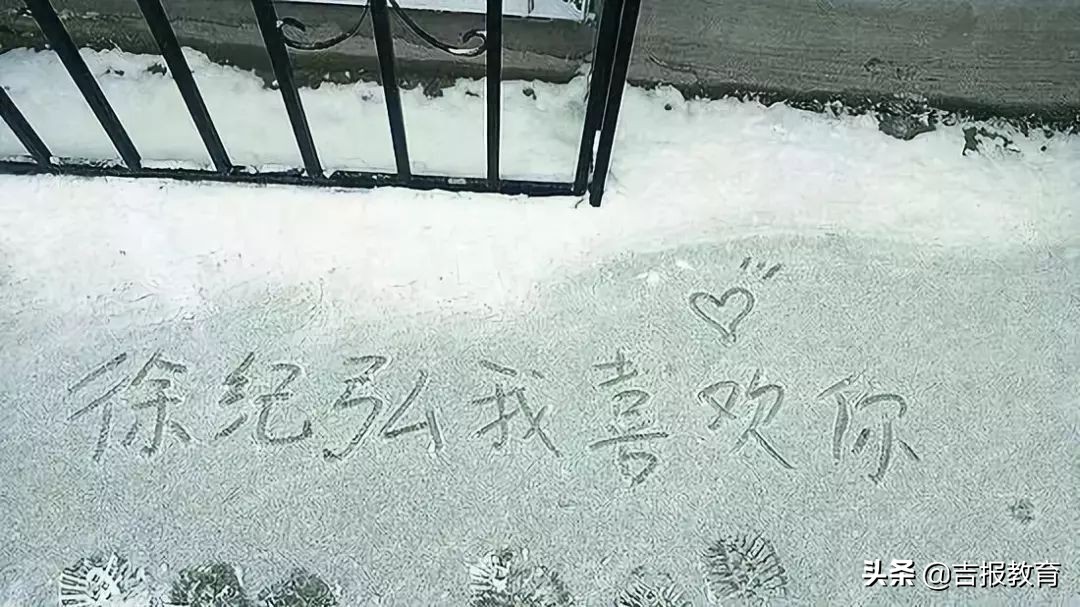 徐纪弘我喜欢你
头条 @吉报教育